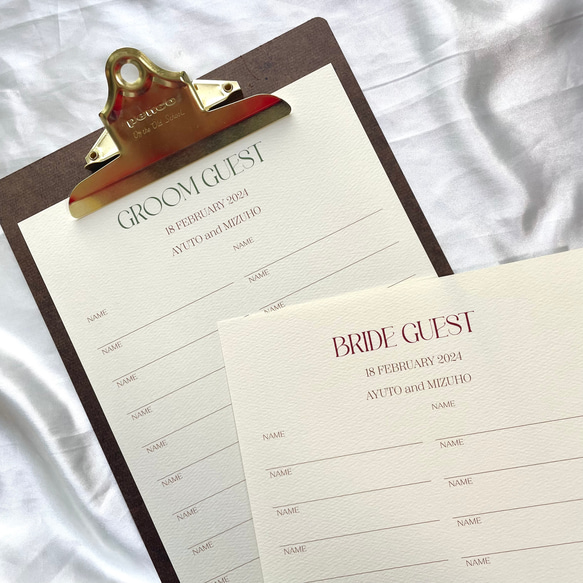 penco
GROOM GUEST
18 FEBRUARY 2024
AYUTO and MIZUHO
NAME
NAME
NAME
NAME
NAME
NAME
NAME
NAME
NAME
NAME
NAME
NAME
BRIDE GUEST
18 FEBRUARY 2024
AYUTO and MIZUHO
NAME
NAME
NAME
NAME
NAME
NAME
NAME
NAME
NAME